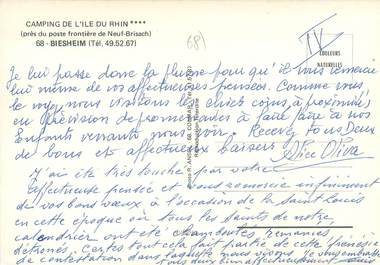 CAMPING DE L'ILE DU RHIN ****
(près du poste frontière de Neuf-Brisach)
68 - BIESHEIM (Tél. 49.52.67)
68
IV
COULEURS
NATURELLES
Je lui passe donc la plume pour qu'il vous remercie
lui même de vos affectueuses pensées. Comme vous
le voyez nous visitons les chics coins à proximité
en prévision de promenades à faire faire à nos
Enfants venants nous voir. Recevez tous Deux
de bons et affectueux baisers Alice Oliva
J'ai été très touché par votre
affectueuse pensée et vous remercie infiniment
de vos bons vœux à l'occasion de la Saint Louis
en cette époque où tous les Saints de notre
calendrier ont été chamboulés remaniés
détronés. Certes tout cela fait partie de cette frénésie
de contestation dans laquelle nous vivons. Je vous embrasse
tous deux bien affectueusement